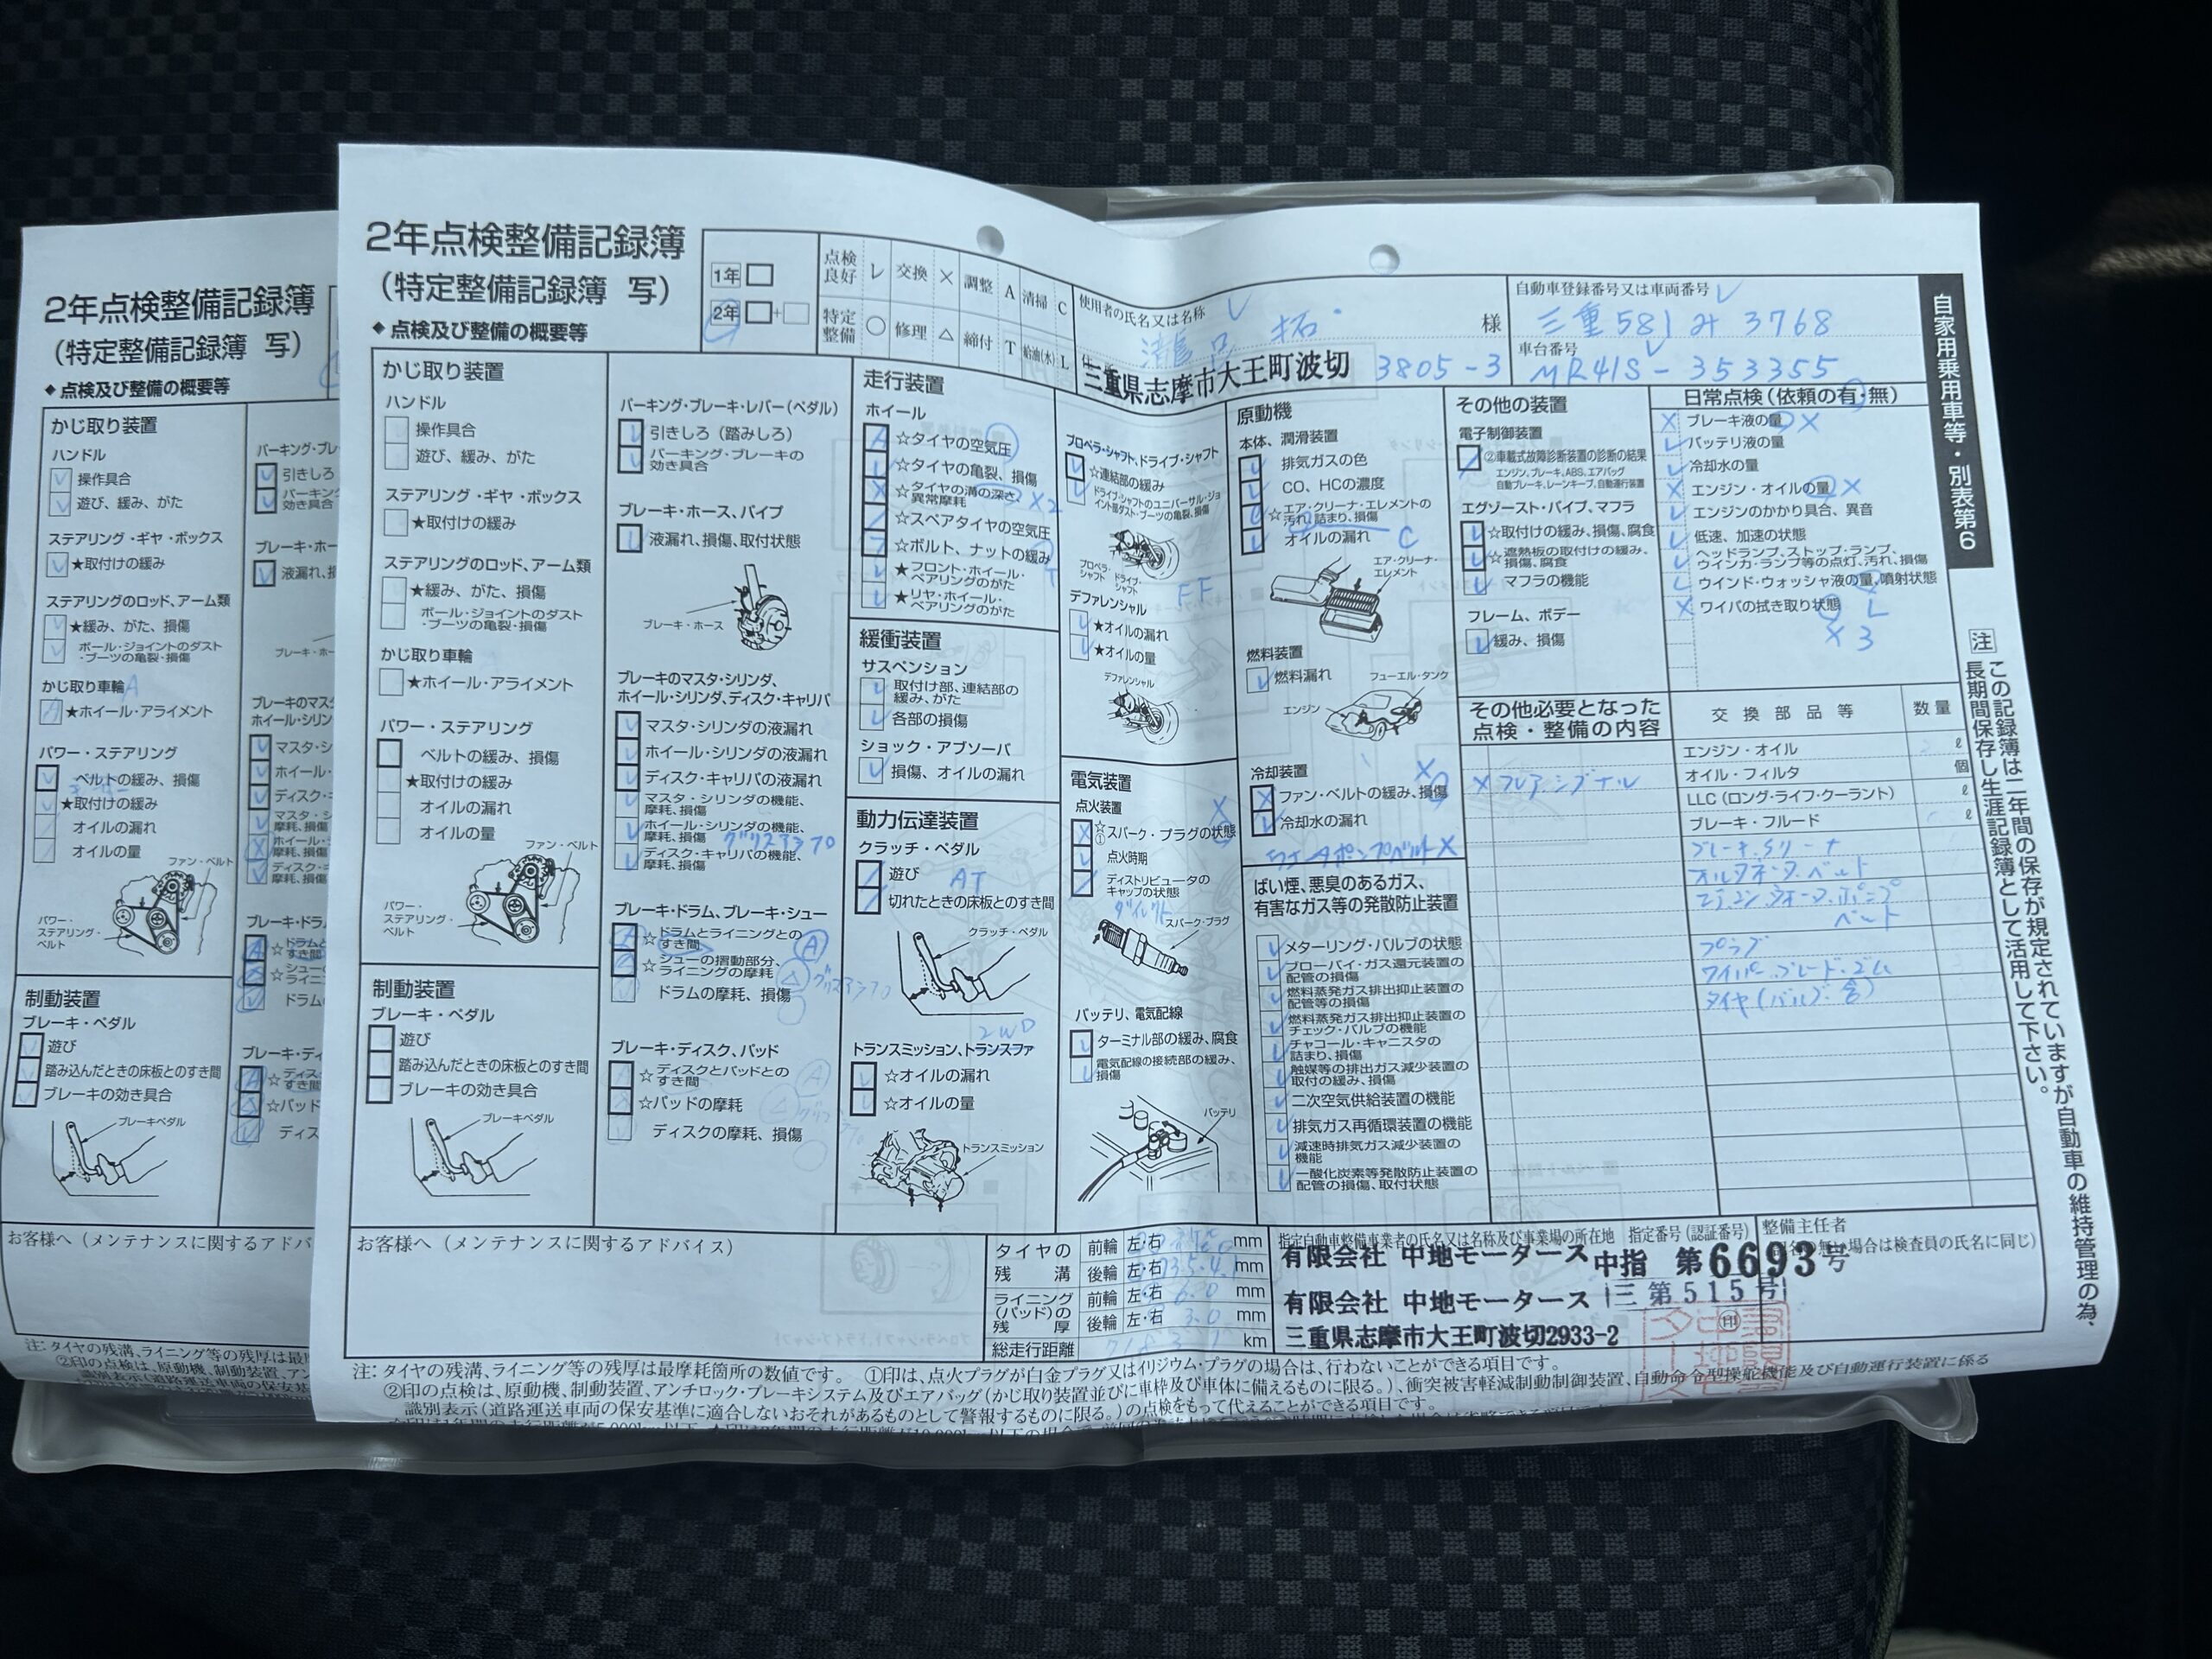 2年点検整備記録簿
(特定整備記録簿 写)
◆点検及び整備の概要等
かじ取り装置
ハンドル
操作具合
遊び、緩み、がた
ステアリング・ギヤ・ボックス
★取付けの緩み
ステアリングのロッド、アーム類
★緩み、がた、損傷
ボール・ジョイントのダスト
・ブーツの亀裂・損傷
かじ取り車輪 A
★ホイール・アライメント
パワー・ステアリング
ベルトの緩み、損傷
★取付けの緩み
オイルの漏れ
オイルの量
ファン・ベルト
パワー・
ステアリング・
ベルト
制動装置
ブレーキ・ペダル
遊び
踏み込んだときの床板とのすき間
ブレーキの効き具合
ブレーキペダル
お客様へ(メンテナンスに関するアドバ
2年点検整備記録簿
(特定整備記録簿 写)
◆点検及び整備の概要等
1年
2年 +
点検良好 レ 交換 × 調整 A 清掃 C
特定整備 ○ 修理 △ 締付 T 給油(水) L
使用者の氏名又は名称
拓 様
三重県志摩市大王町波切 3805-3
自動車登録番号又は車両番号
三重 581 み 3768
車台番号
MR41S-353355
自家用乗用車等・別表第6
かじ取り装置
ハンドル
操作具合
遊び、緩み、がた
ステアリング・ギヤ・ボックス
★取付けの緩み
ステアリングのロッド、アーム類
★緩み、がた、損傷
ボール・ジョイントのダスト
・ブーツの亀裂・損傷
かじ取り車輪
★ホイール・アライメント
パワー・ステアリング
ベルトの緩み、損傷
★取付けの緩み
オイルの漏れ
オイルの量
ファン・ベルト
パワー・
ステアリング・
ベルト
制動装置
ブレーキ・ペダル
遊び
踏み込んだときの床板とのすき間
ブレーキの効き具合
ブレーキペダル
パーキング・ブレーキ・レバー(ペダル)
引きしろ(踏みしろ)
パーキング・ブレーキの
効き具合
ブレーキ・ホース、パイプ
液漏れ、損傷、取付状態
ブレーキ・ホース
ブレーキのマスタ・シリンダ、
ホイール・シリンダ、ディスク・キャリパ
マスタ・シリンダの液漏れ
ホイール・シリンダの液漏れ
ディスク・キャリパの液漏れ
マスタ・シリンダの機能、
摩耗、損傷
ホイール・シリンダの機能、
摩耗、損傷
ディスク・キャリパの機能、
摩耗、損傷
ブレーキ・ドラム、ブレーキ・シュー
☆ドラムとライニングとの
すき間 A
☆シューの摺動部分、
ライニングの摩耗 △
ドラムの摩耗、損傷
ブレーキ・ディスク、パッド
☆ディスクとパッドとの
すき間 A
☆パッドの摩耗 △
ディスクの摩耗、損傷
走行装置
ホイール
☆タイヤの空気圧
☆タイヤの亀裂、損傷
☆タイヤの溝の深さ、 ×2
異常摩耗
☆スペアタイヤの空気圧
☆ボルト、ナットの緩み T
★フロント・ホイール・
ベアリングのがた
★リヤ・ホイール・
ベアリングのがた
緩衝装置
サスペンション
取付け部、連結部の
緩み、がた
各部の損傷
ショック・アブソーバ
損傷、オイルの漏れ
動力伝達装置
クラッチ・ペダル
遊び AT
切れたときの床板とのすき間
クラッチ・ペダル
2WD
トランスミッション、トランスファ
☆オイルの漏れ
☆オイルの量
トランスミッション
プロペラ・シャフト、ドライブ・シャフト
☆連結部の緩み
ドライブ・シャフトのユニバーサル・ジョ
イント部ダスト・ブーツの亀裂、損傷
プロペラ・シャフト
ドライブ・シャフト
FF
デファレンシャル
★オイルの漏れ
★オイルの量
デファレンシャル
電気装置
点火装置
☆①スパーク・プラグの状態
点火時期
ディストリビュータの
キャップの状態
ダイレクト
スパーク・プラグ
バッテリ、電気配線
ターミナル部の緩み、腐食
電気配線の接続部の緩み、
損傷
バッテリ
原動機
本体、潤滑装置
排気ガスの色
CO、HCの濃度
☆エア・クリーナ・エレメントの
汚れ、詰まり、損傷
オイルの漏れ C
エア・クリーナ・
エレメント
燃料装置
燃料漏れ
フューエル・タンク
エンジン
冷却装置
ファン・ベルトの緩み、損傷
冷却水の漏れ
ばい煙、悪臭のあるガス、
有害なガス等の発散防止装置
メターリング・バルブの状態
ブローバイ・ガス還元装置の
配管の損傷
燃料蒸発ガス排出抑止装置の
配管等の損傷
燃料蒸発ガス排出抑止装置の
チェック・バルブの機能
チャコール・キャニスタの
詰まり、損傷
触媒等の排出ガス減少装置の
取付の緩み、損傷
二次空気供給装置の機能
排気ガス再循環装置の機能
減速時排気ガス減少装置の
機能
一酸化炭素等発散防止装置の
配管の損傷、取付状態
その他の装置
電子制御装置
②車載式故障診断装置の診断の結果
エンジン、ブレーキ、ABS、エアバッグ
自動ブレーキ、レーンキープ、自動運行装置
エグゾースト・パイプ、マフラ
☆取付けの緩み、損傷、腐食
☆遮熱板の取付けの緩み、
損傷、腐食
マフラの機能
フレーム、ボデー
緩み、損傷
その他必要となった
点検・整備の内容
日常点検(依頼の有・無)
ブレーキ液の量 ×
バッテリ液の量
冷却水の量
エンジン・オイルの量 ×
エンジンのかかり具合、異音
低速、加速の状態
ヘッドランプ、ストップ・ランプ、
ウインカ・ランプ等の点灯、汚れ、損傷
ウインド・ウォッシャ液の量、噴射状態
ワイパの拭き取り状態 L
×3
交換部品等 数量
エンジン・オイル ℓ
オイル・フィルタ 個
LLC(ロング・ライフ・クーラント) ℓ
ブレーキ・フルード ℓ
オルタネータ ベルト
ベルト
プラグ
ワイパー ブレード・ゴム
タイヤ(バルブ 含)
注 この記録簿は二年間の保存が規定されていますが自動車の維持管理の為、
長期間保存し生涯記録簿として活用して下さい。
お客様へ(メンテナンスに関するアドバイス)
タイヤの残溝 前輪 左・右 mm
後輪 左・右 mm
ライニング(パッド)の残厚 前輪 左・右 6.0 mm
後輪 左・右 3.0 mm
総走行距離 km
指定自動車整備事業者の氏名又は名称及び事業場の所在地 指定番号(認証番号)
有限会社 中地モータース 中指 第6693号
有限会社 中地モータース 三第515号
三重県志摩市大王町波切2933-2
整備主任者
印
注:タイヤの残溝、ライニング等の残厚は最摩耗箇所の数値です。 ①印は、点火プラグが白金プラグ又はイリジウム・プラグの場合は、行わないことができる項目です。
②印の点検は、原動機、制動装置、アンチロック・ブレーキシステム及びエアバッグ(かじ取り装置並びに車枠及び車体に備えるものに限る。)、衝突被害軽減制動制御装置、自動命令型操舵機能及び自動運行装置に係る
識別表示(道路運送車両の保安基準に適合しないおそれがあるものとして警報するものに限る。)の点検をもって代えることができる項目です。